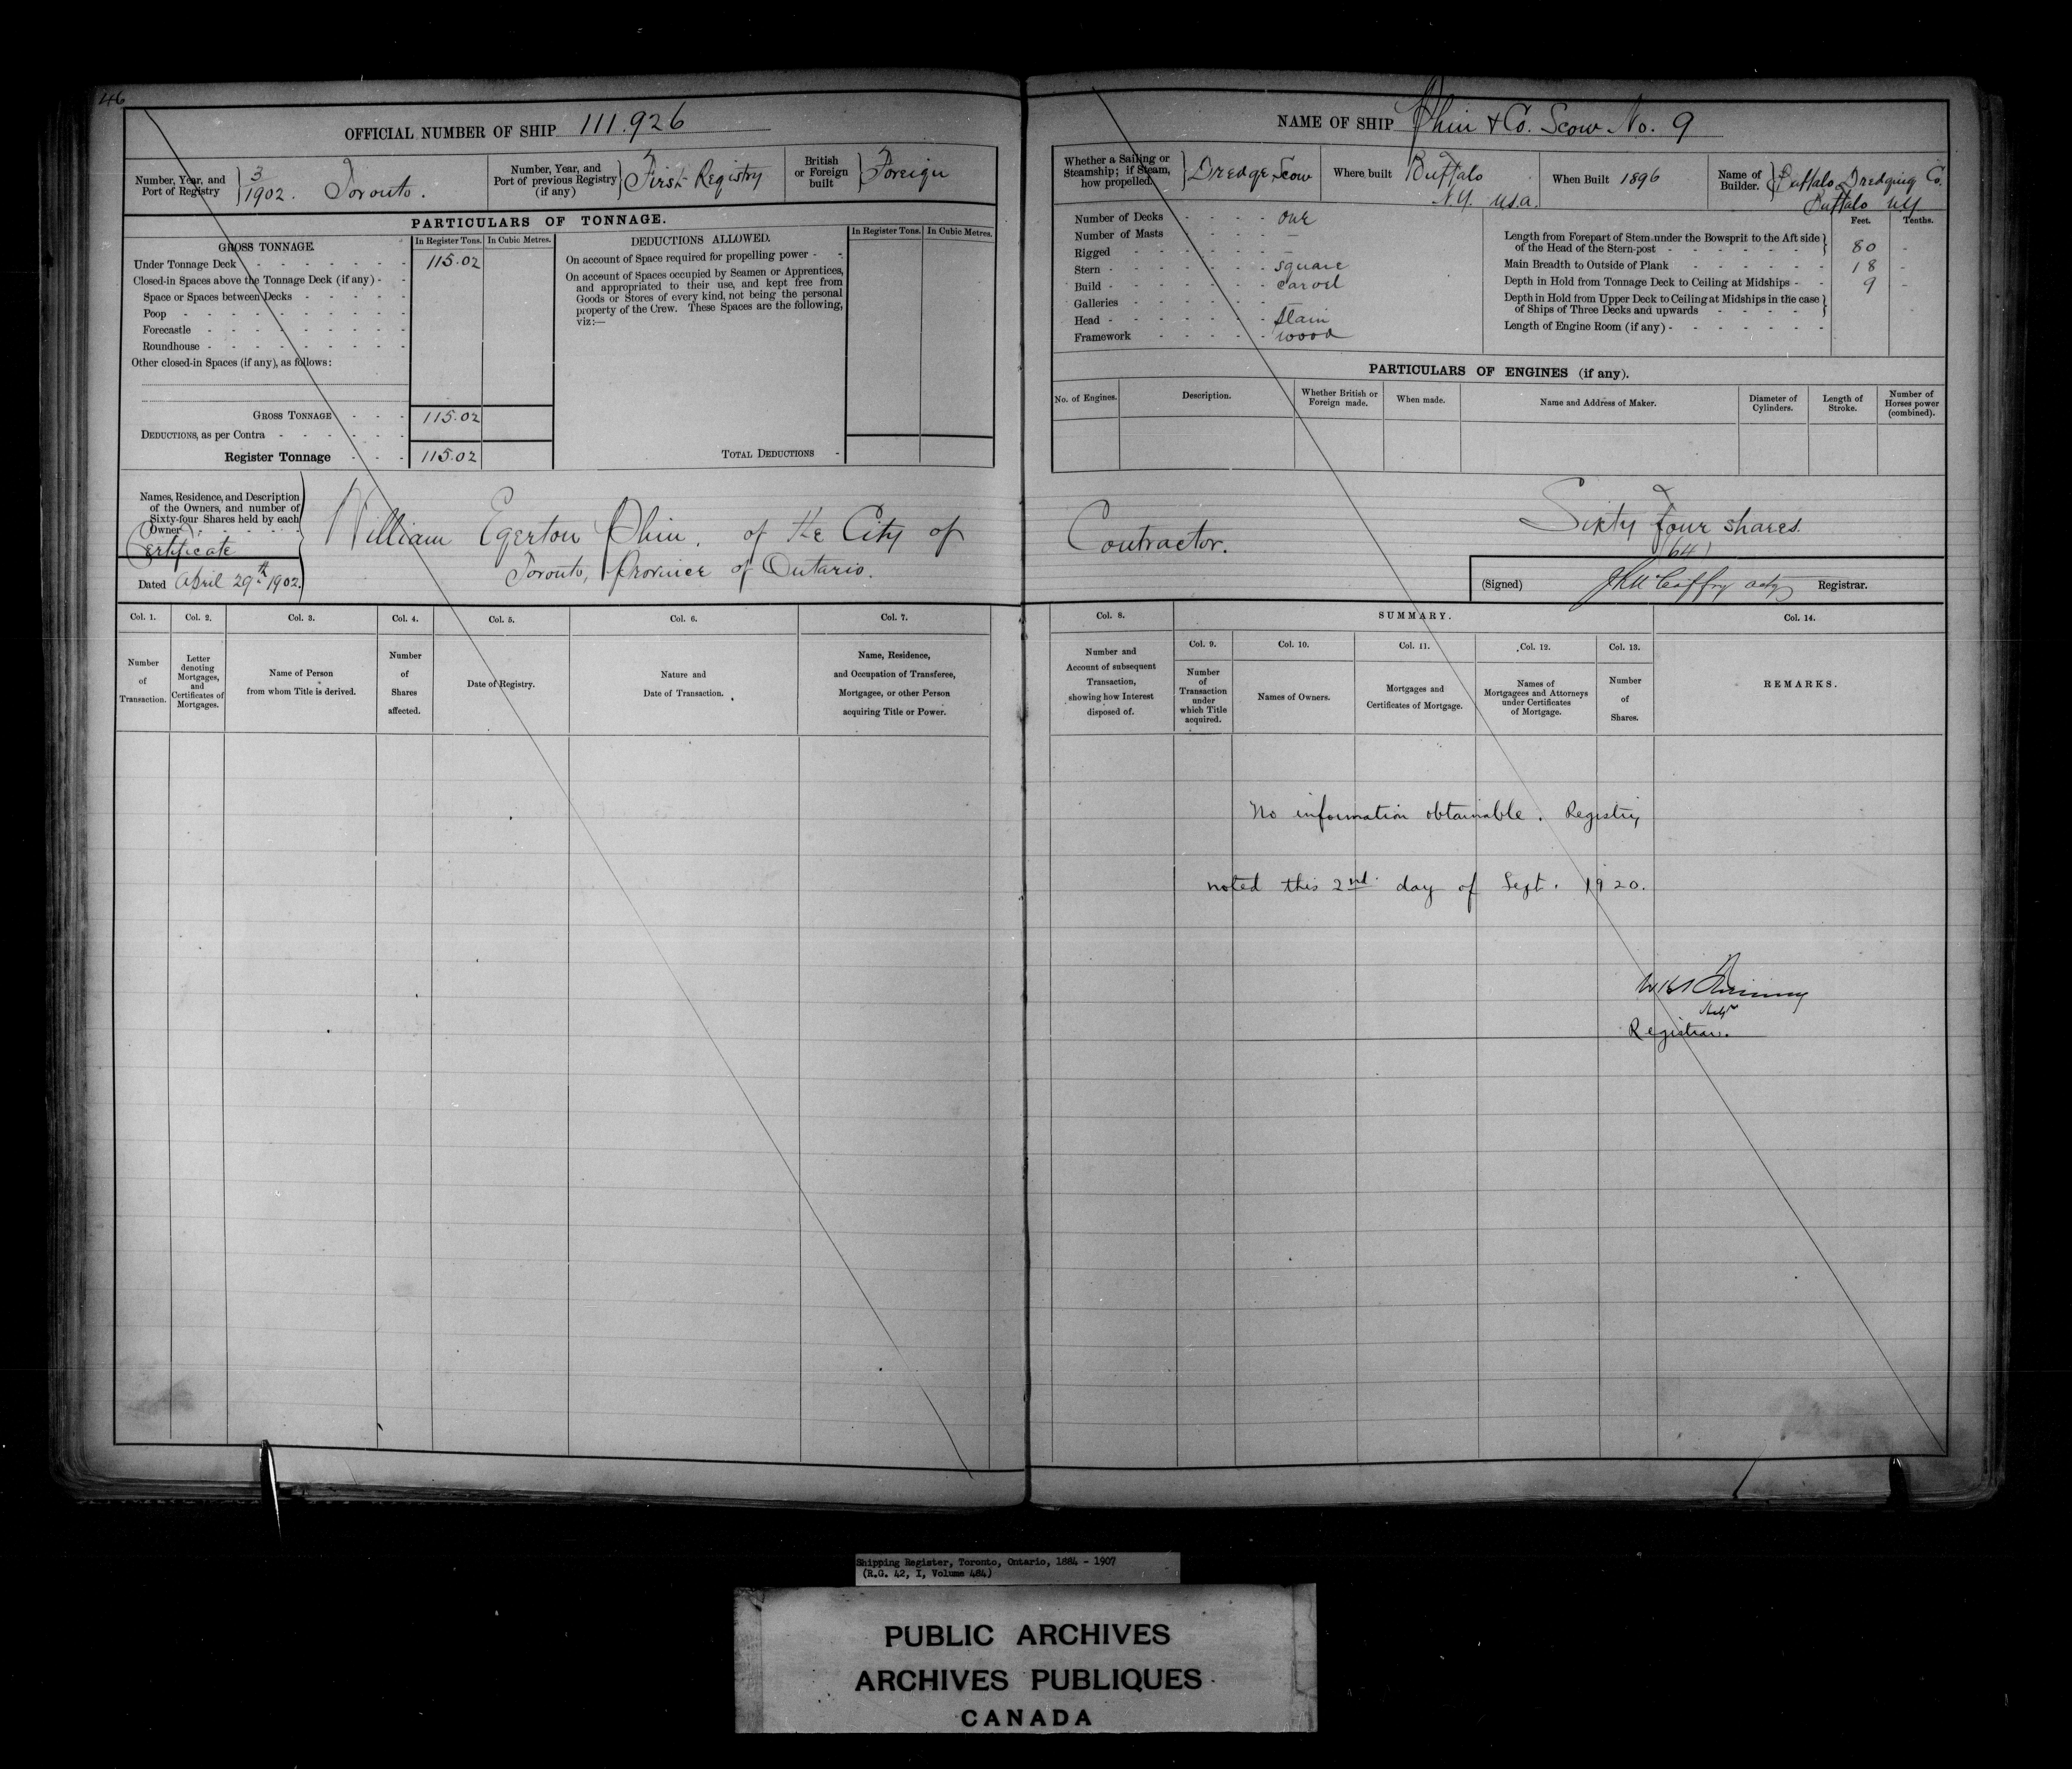 46
OFFICIAL NUMBER OF SHIP 111.926
Number, Year, and Port of Registry } 3/1902. Toronto.
Number, Year, and Port of previous Registry (if any) } First Registry
British or Foreign built } Foreign
PARTICULARS OF TONNAGE.
GROSS TONNAGE.
In Register Tons. In Cubic Metres.
Under Tonnage Deck - - - 115.02
Closed-in Spaces above the Tonnage Deck (if any) -
Space or Spaces between Decks
Poop
Forecastle
Roundhouse
Other closed-in Spaces (if any), as follows:
GROSS TONNAGE 115.02
DEDUCTIONS, as per Contra
Register Tonnage 115.02
DEDUCTIONS ALLOWED.
In Register Tons. In Cubic Metres.
On account of Space required for propelling power -
On account of Spaces occupied by Seamen or Apprentices,
and appropriated to their use, and kept free from
Goods or Stores of every kind, not being the personal
property of the Crew. These Spaces are the following,
viz:—
TOTAL DEDUCTIONS -
Names, Residence, and Description
of the Owners, and number of
Sixty-four Shares held by each
Owner
Certificate
Dated April 29th 1902.
William Egerton Phin, of the City of
Toronto, Province of Ontario.
Col. 1. Col. 2. Col. 3. Col. 4. Col. 5. Col. 6. Col. 7.
Number of Transaction.
Letter denoting Mortgages, and Certificates of Mortgages.
Name of Person from whom Title is derived.
Number of Shares affected.
Date of Registry.
Nature and Date of Transaction.
Name, Residence, and Occupation of Transferee, Mortgagee, or other Person acquiring Title or Power.
NAME OF SHIP Phin & Co. Scow No. 9
Whether a Sailing or Steamship; if Steam, how propelled. } Dredge Scow
Where built Buffalo N.Y. U.S.A.
When Built 1896
Name of Builder. } Buffalo Dredging Co. Buffalo NY
Number of Decks - - - - one
Number of Masts - - - - —
Rigged - - - - —
Stern - - - - square
Build - - - - carvel
Galleries - - - - —
Head - - - - plain
Framework - - - - wood
Feet. Tenths.
Length from Forepart of Stem under the Bowsprit to the Aft side
of the Head of the Stern-post } 80 -
Main Breadth to Outside of Plank 18 -
Depth in Hold from Tonnage Deck to Ceiling at Midships - - 9 -
Depth in Hold from Upper Deck to Ceiling at Midships in the case
of Ships of Three Decks and upwards
Length of Engine Room (if any) -
PARTICULARS OF ENGINES (if any).
No. of Engines.
Description.
Whether British or Foreign made.
When made.
Name and Address of Maker.
Diameter of Cylinders.
Length of Stroke.
Number of Horses power (combined).
Contractor.
Sixty four shares.
(64)
(Signed) Registrar.
Col. 8. SUMMARY. Col. 14.
Col. 9. Col. 10. Col. 11. Col. 12. Col. 13.
Number and Account of subsequent Transaction, showing how Interest disposed of.
Number of Transaction under which Title acquired.
Names of Owners.
Mortgages and Certificates of Mortgage.
Names of Mortgagees and Attorneys under Certificates of Mortgage.
Number of Shares.
REMARKS.
No information obtainable. Registry
noted this 2nd. day of Sept. 1920.
Registrar.
Shipping Register, Toronto, Ontario, 1884 - 1907
(R.G. 42, I, Volume 484)
PUBLIC ARCHIVES
ARCHIVES PUBLIQUES
CANADA